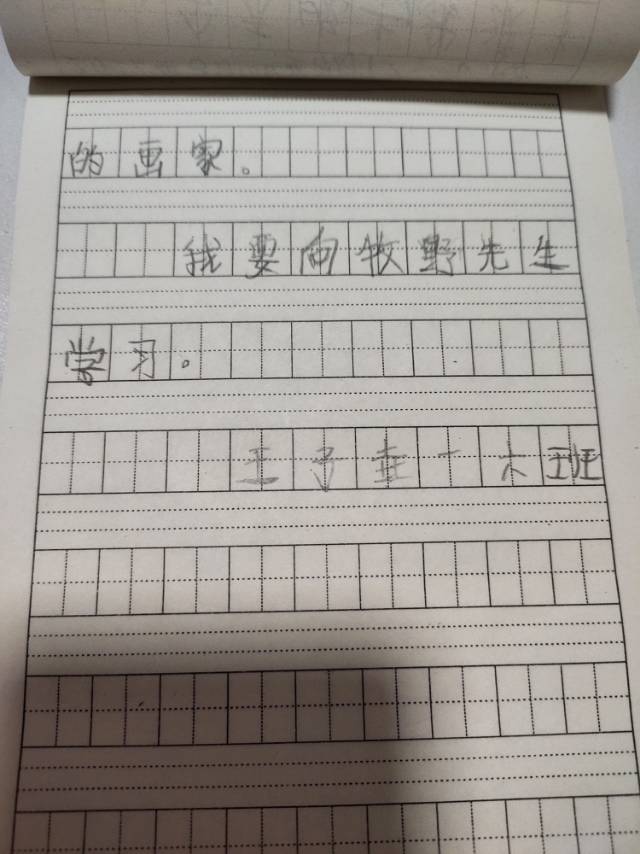 的画家。
我要向牧野先生
学习。
王子垂一六班